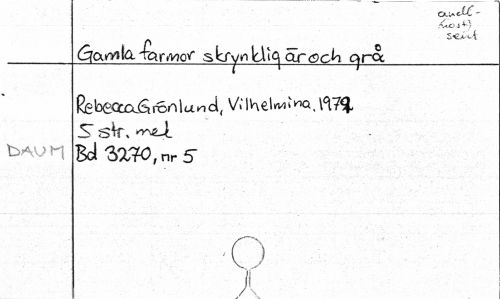 Gamla farmor skrynklig är och grå
Rebecca Grönlund, Vilhelmina, 1979
5 str. mel
DAUM Bd 3270, nr 5